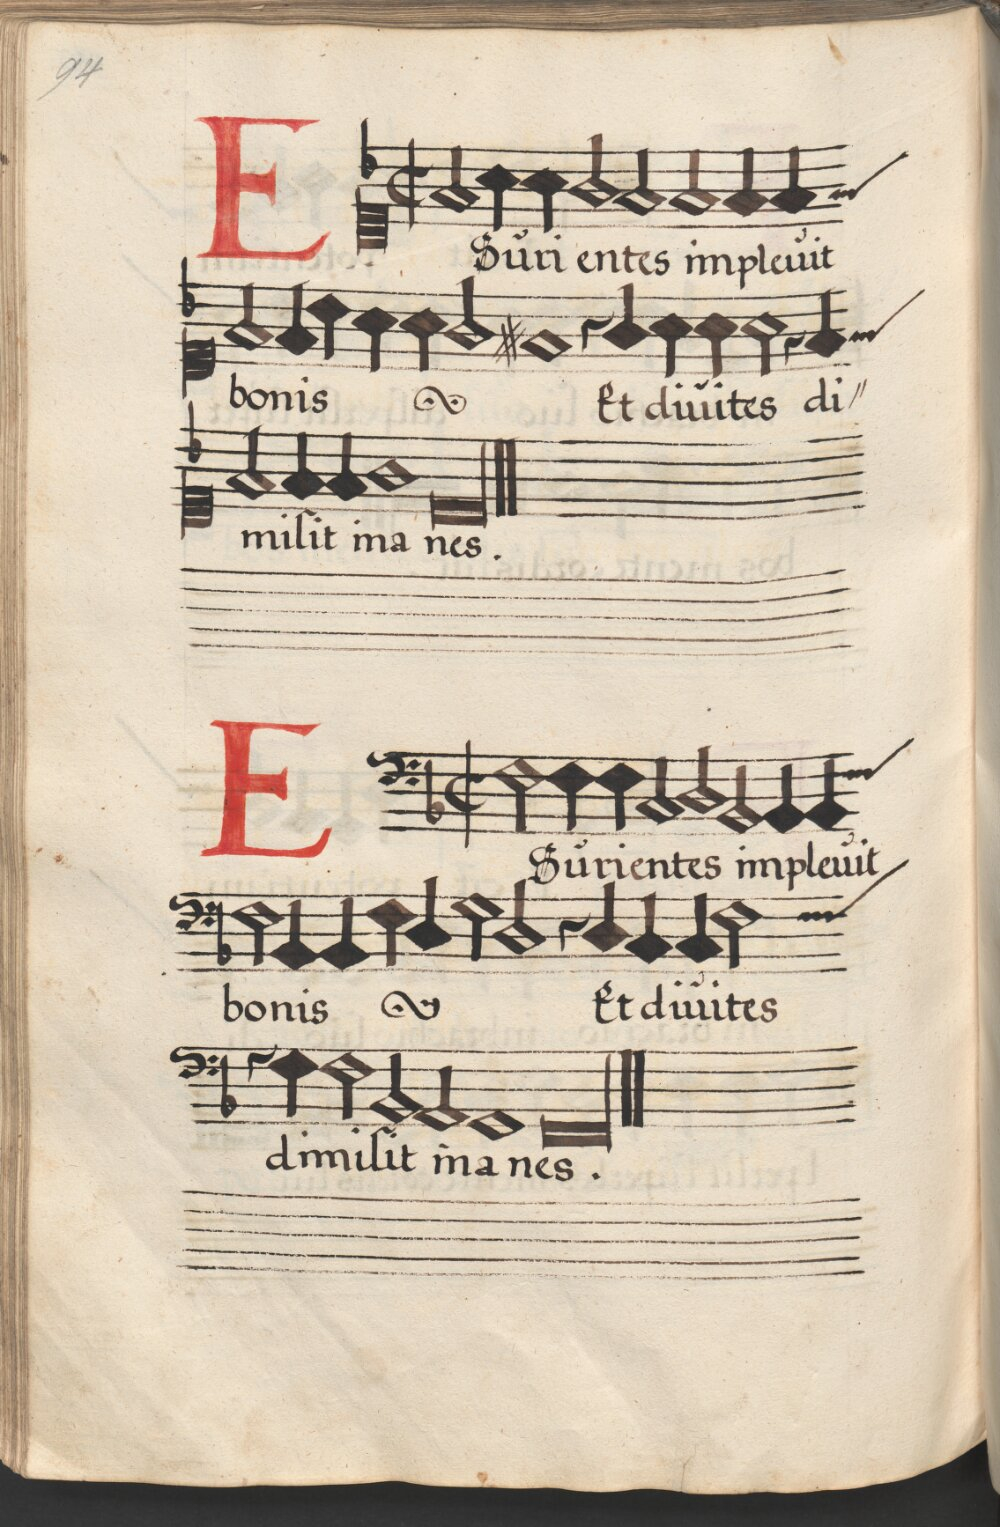 94
ESurientes implevit
bonis Et divites di//
misit ina nes.
ESurientes implevit
bonis Et divites
dimisit inanes.